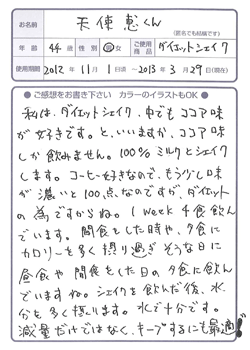 お名前 天使悪くん
(匿名でも結構です)
年齢 44歳 性別 男 女 ご使用商品 ダイエットシェイク
使用期間 2012年11月1日頃〜2013年3月29日(現在)
●ご感想をお書き下さい カラーのイラストもOK●
私は、ダイエットシェイク、中でもココア味
が好きです。と、いいますか、ココア味
しか飲みません。100%ミルクとシェイク
します。コーヒー好きなので、もう少し味
が濃いと100点なのですが、ダイエット
の為ですからね。1week 4食飲ん
でいます。間食をした時や、夕食に
カロリーを多く摂り過ぎそうな日に
昼食や間食をした日の夕食に飲ん
でいますね。シェイクを飲んだ後、水
分を多く摂ります。水で十分です。
減量だけではなく、キープするにも最適!